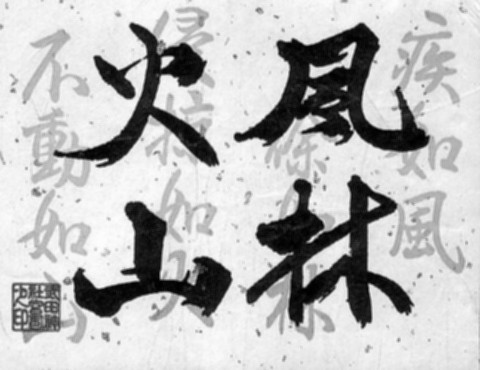 風林
火山
疾如風
徐如林
侵掠如火
不動如山